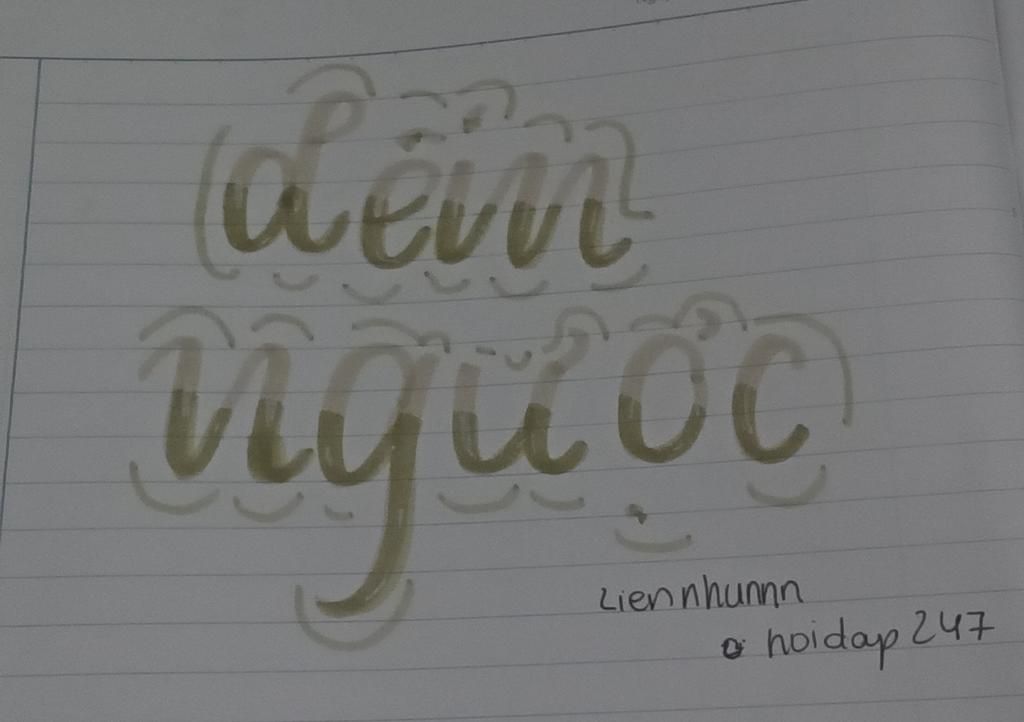 đếm
ngược
liennhumn
hoidap 247